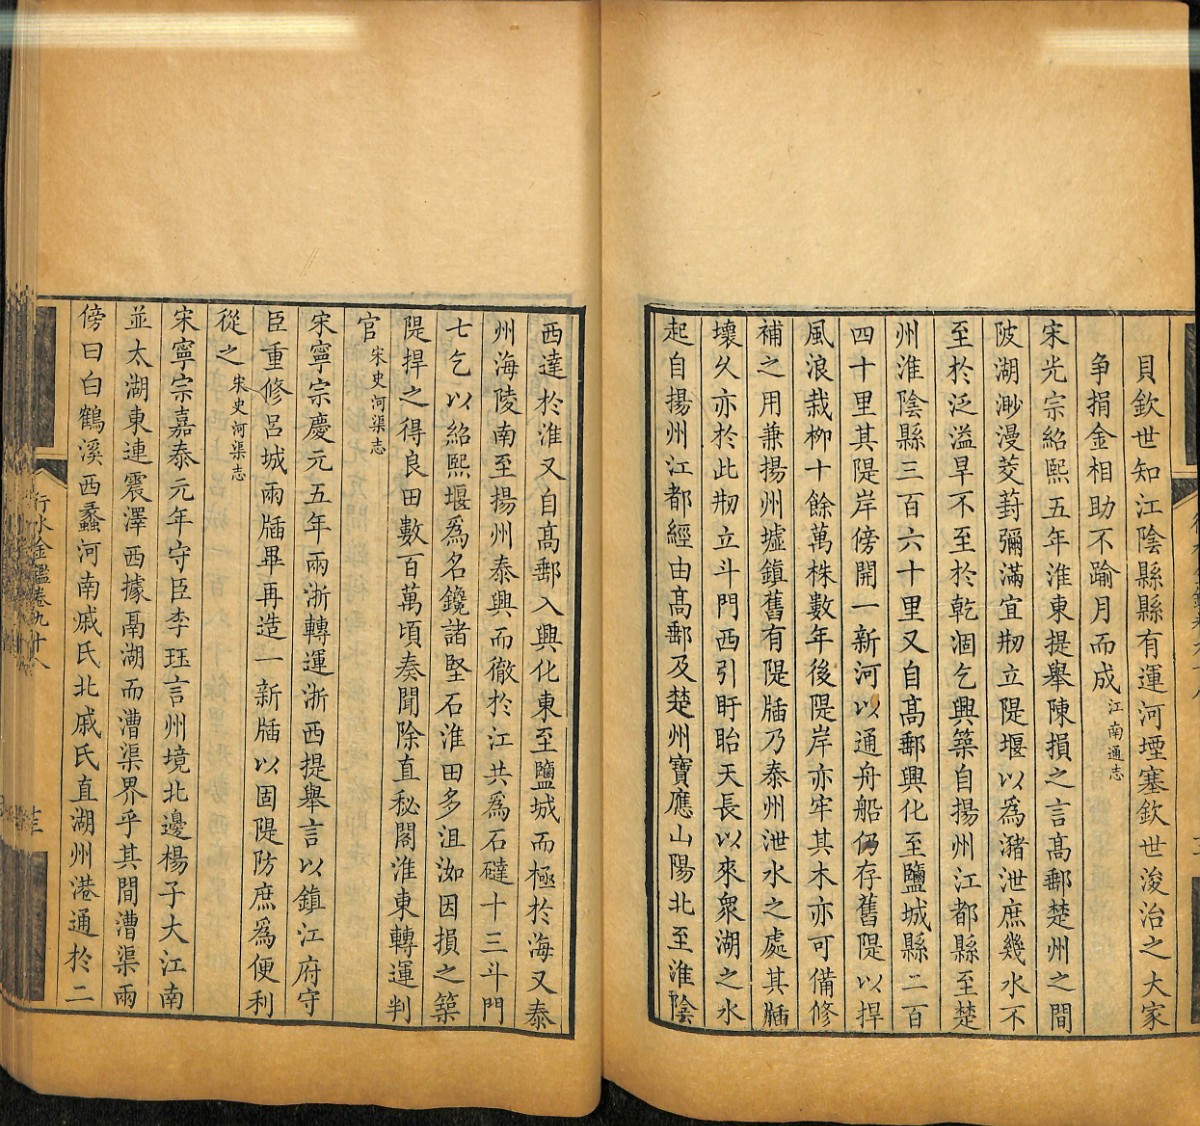 貝欽世知江陰縣縣有運河堙塞欽世浚治之大家
争捐金相助不踰月而成江南通志
宋光宗紹熙五年淮東提舉陳損之言髙郵楚州之間
陂湖渺漫茭葑彌滿宜剏立隄堰以為瀦泄庶幾水不
至於泛溢旱不至於乾涸乞興築自揚州江都縣至楚
州淮陰縣三百六十里又自髙郵興化至鹽城縣二百
四十里其隄岸傍開一新河以通舟船仍存舊隄以捍
風浪栽栁十餘萬株數年後隄岸亦牢其木亦可備修
補之用兼揚州墟鎮舊有隄牐乃泰州泄水之處其牐
壞乆亦於此剏立斗門西引盱眙天長以來衆湖之水
起自揚州江都經由髙郵及楚州寶應山陽北至淮陰
西達於淮又自髙郵入興化東至鹽城而極於海又泰
州海陵南至揚州泰興而徹於江共為石䃮十三斗門
七乞以紹熙堰爲名鑱諸堅石淮田多沮洳因損之築
隄捍之得良田數百萬頃奏聞除直秘閣淮東轉運判
官宋史河渠志
宋寧宗慶元五年兩浙轉運浙西提舉言以鎮江府守
臣重修呂城兩牐畢再造一新牐以固隄防庶爲便利
從之宋史河渠志
宋寧宗嘉泰元年守臣李珏言州境北邊楊子大江南
並太湖東連震澤西據鬲湖而漕渠界乎其間漕渠兩
傍曰白鶴溪西蠡河南戚氏北戚氏直湖州港通於二
行水金鑑卷九十八